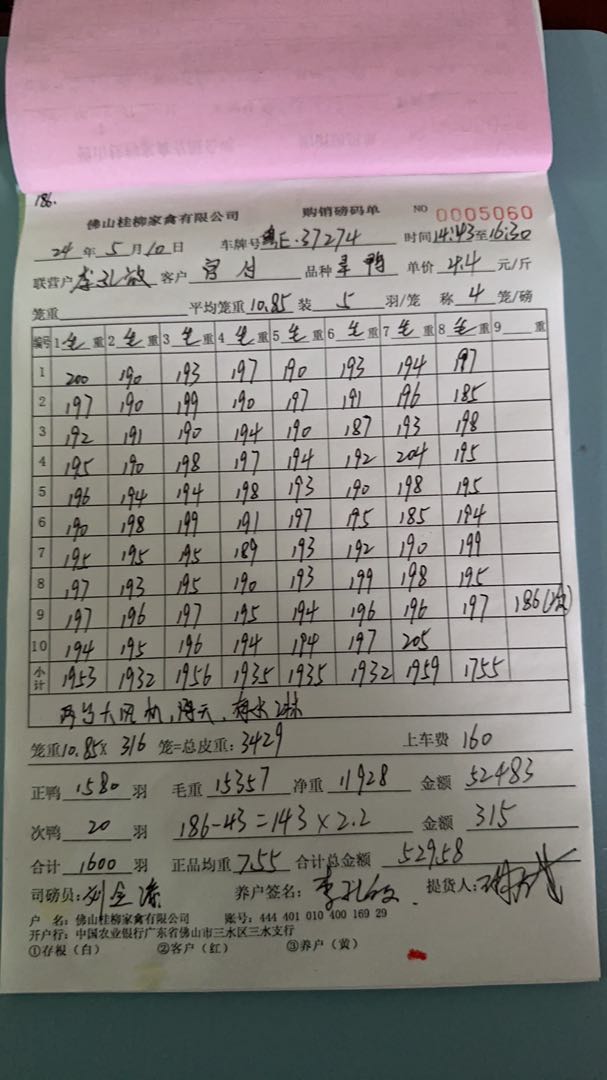 186.
佛山桂柳家禽有限公司 购销磅码单 NO 0005060
24年5月10日 车牌号粤E·37274 时间14:43至16:30
联营户李孔 客户 品种 鸭 单价4.4元/斤
笼重 平均笼重10.85装5羽/笼 称4笼/磅
编号 1毛重 2毛重 3毛重 4毛重 5毛重 6毛重 7毛重 8毛重 9 重
1 200 190 193 197 190 193 194 197
2 197 190 199 190 197 191 196 185
3 192 191 190 194 190 187 193 198
4 195 190 198 197 194 192 204 195
5 196 194 194 198 193 190 198 195
6 190 198 199 191 197 195 185 194
7 195 195 195 189 193 192 190 199
8 197 193 195 190 193 199 198 195
9 197 196 197 195 194 196 196 197 186(次)
10 194 195 196 194 194 197 205
小计 1953 1932 1956 1935 1935 1932 1959 1755
大风机
笼重10.85×316笼=总皮重:3429 上车费160
正鸭1580羽 毛重15357净重11928 金额52483
次鸭20羽 186-43=143×2.2 金额315
合计1600羽 正品均重7.55 合计总金额52958
司磅员: 养户签名:李孔 提货人:
户 名:佛山桂柳家禽有限公司 账号:444 401 010 400 169 29
开户行:中国农业银行广东省佛山市三水区三水支行
①存根(白) ②客户(红) ③养户(黄)